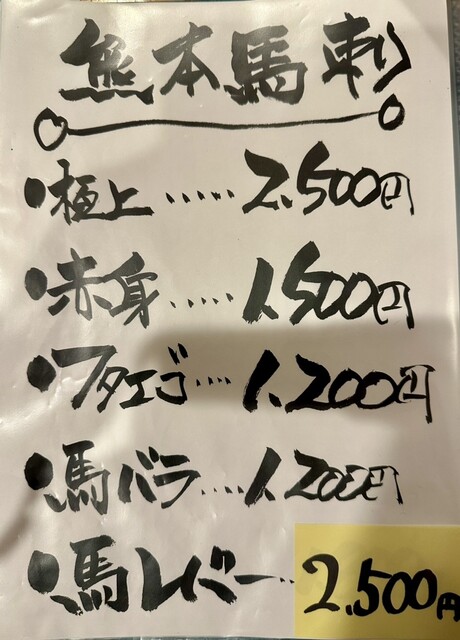 熊本馬刺
●極上……2.500円
●赤身……1.500円
●フタエゴ……1.200円
●馬バラ……1.200円
●馬レバー…2.500円